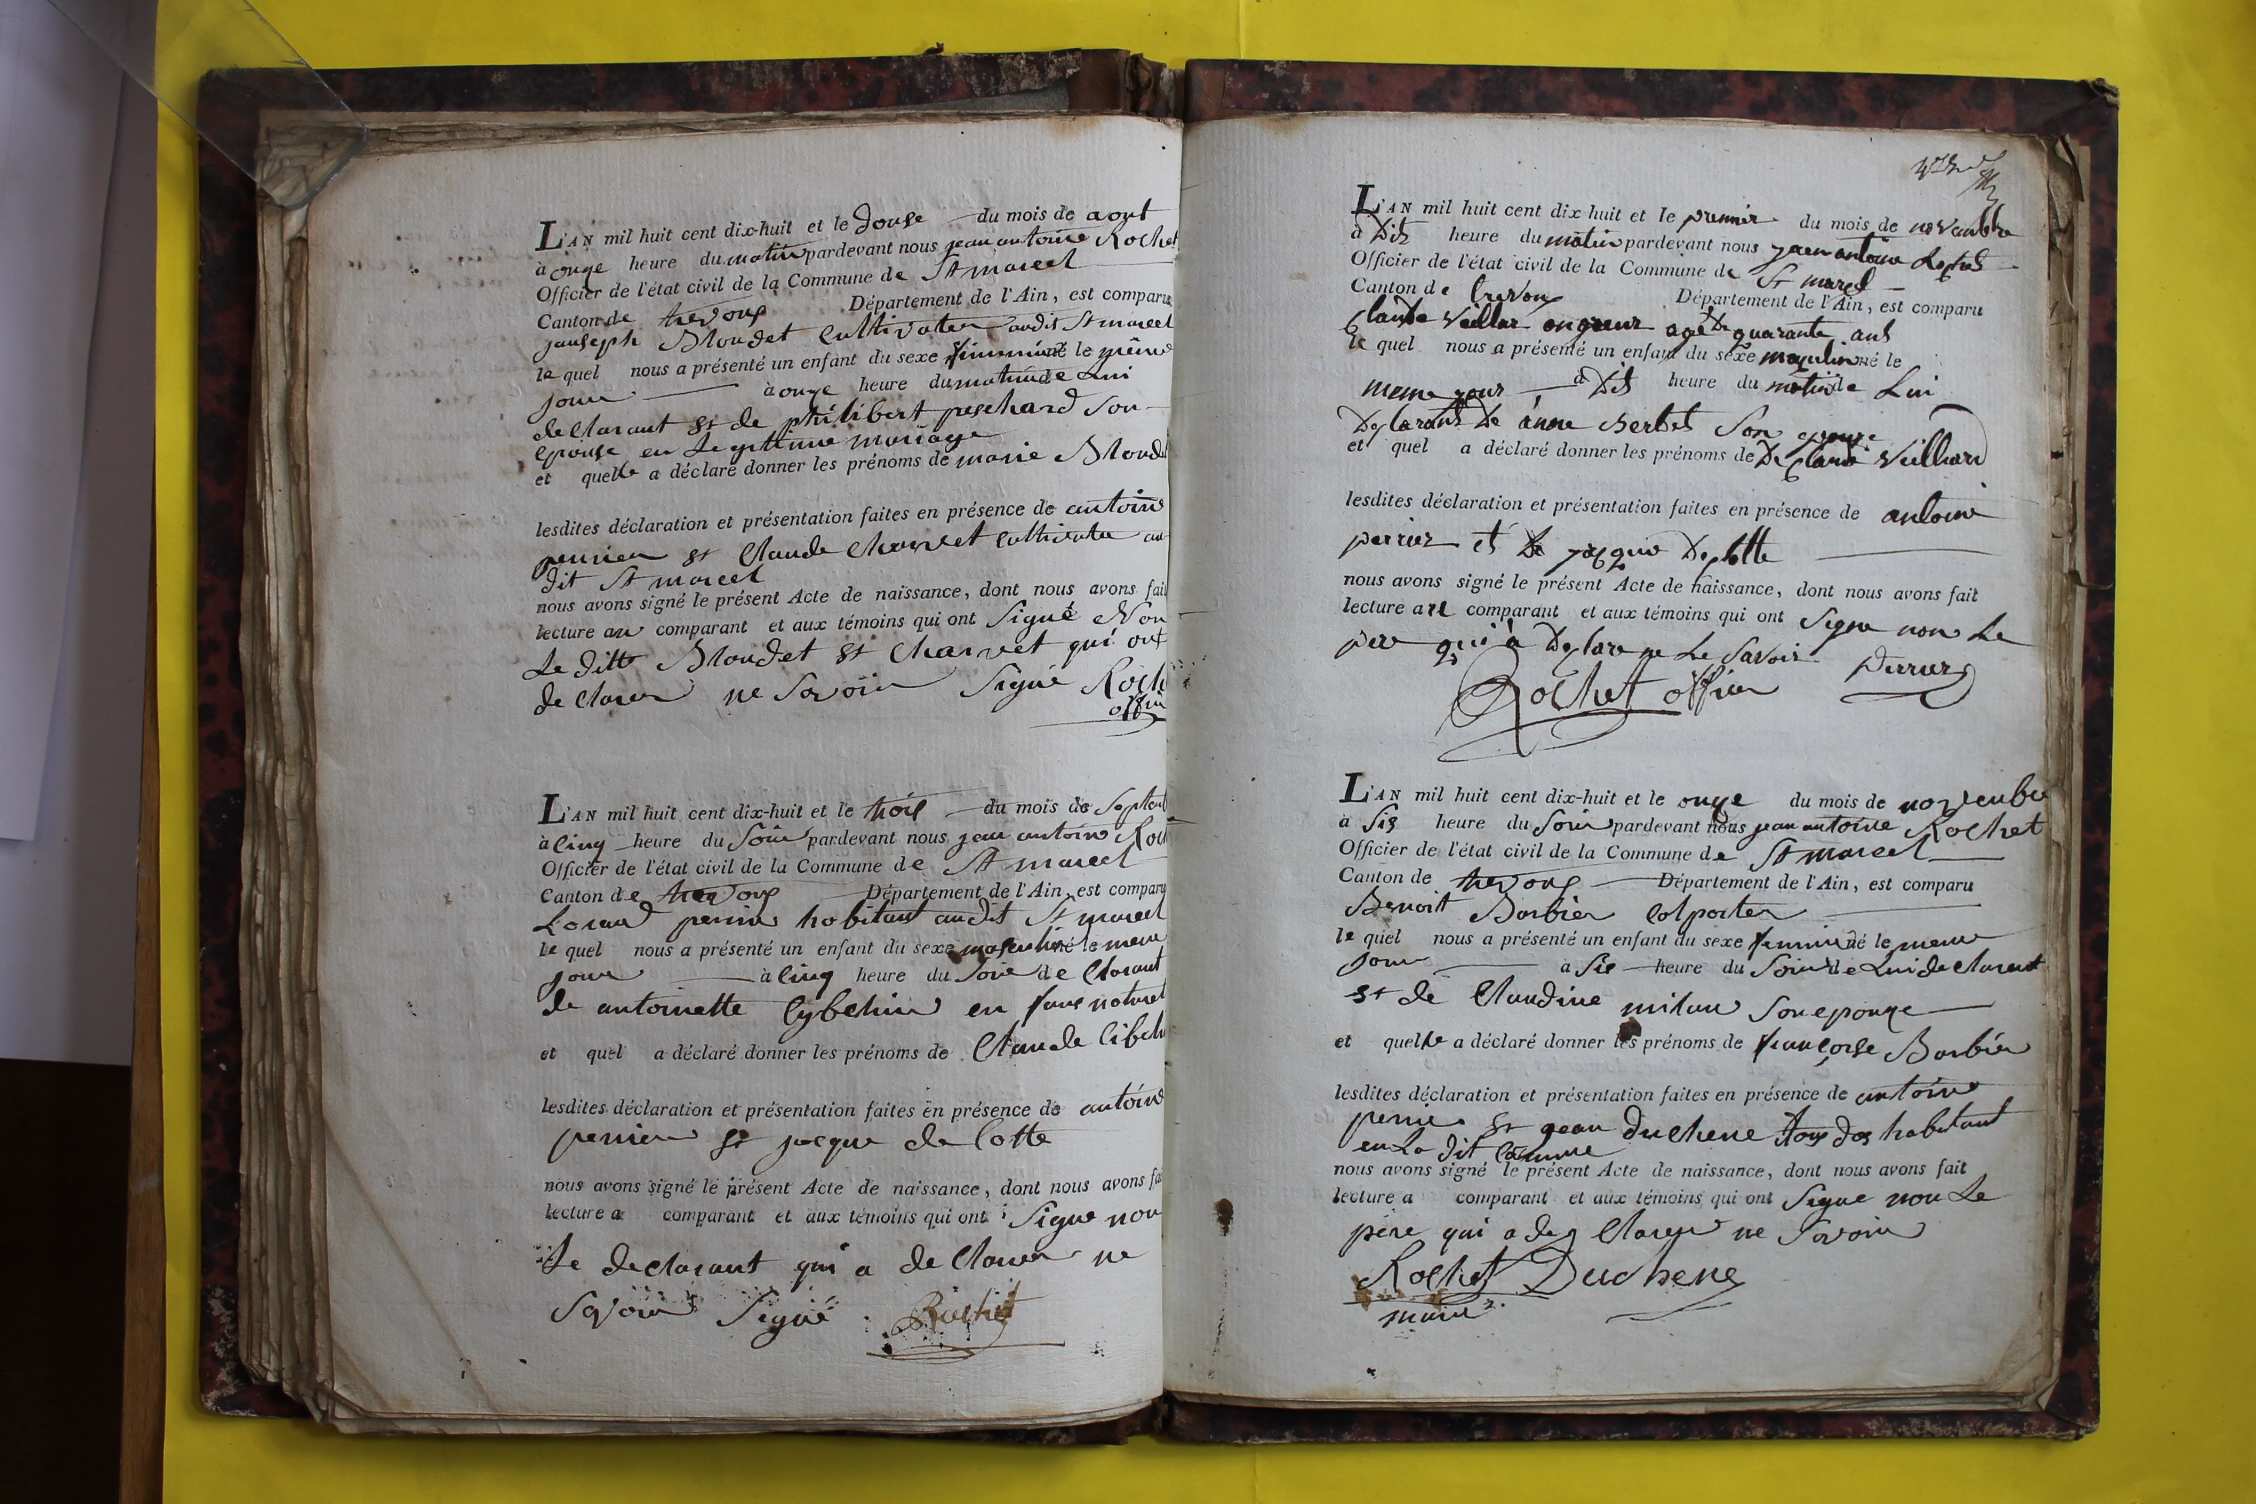 L'AN mil huit cent dix-huit et le douse du mois de aout
à onze heure du matin pardevant nous jean antoine Rochet
Officier de l'état civil de la Commune de St marcel
Canton de trevoux Département de l'Ain, est comparu
jauseph Bloudet Cultivateur audit St marcel
le quel nous a présenté un enfant du sexe né le même
jour à onze heure du matin de Lui
declarant et de philibert peschard Son
epouse en Legitime mariage
et quelle a déclaré donner les prénoms de marie Bloudet
lesdites déclaration et présentation faites en présence de antoine
perrier et Claude Charvet Cultivateur au
dit St marcel
nous avons signé le présent Acte de naissance, dont nous avons fait
lecture au comparant et aux témoins qui ont Signé Non
Le ditte Bloudet et Charvet qui ont
de Clarer ne Savoir Signé Roch
offici
L'AN mil huit cent dix-huit et le trois du mois de Septemb
à Cinq heure du Soir pardevant nous jean antoine Roch
Officier de l'état civil de la Commune de St marcel
Canton de trevoux Département de l'Ain, est comparu
perrier habitant audit St marcel
le quel nous a présenté un enfant du sexe masculin né le meme
jour à Cinq heure du Soir de Clarant
de antoinette Cybelin en fans naturel
et quel a déclaré donner les prénoms de Claude Cibeli
lesdites déclaration et présentation faites en présence de antoine
perrier et jacque de Cotte
nous avons signé le présent Acte de naissance, dont nous avons fai
lecture a comparant et aux témoins qui ont Signe non
Le declarant qui a de Clarer ne
Savoir Signé Rochet
L'AN mil huit cent dix-huit et le premier du mois de novembre
à Dix heure du matin pardevant nous jean antoine Rochet
Officier de l'état civil de la Commune de St marcel
Canton de trevoux Département de l'Ain, est comparu
Claude Veillar agé De quarante ans
le quel nous a présenté un enfant du sexe masqulin né le
meme jour à Dix heure du matin de Lui
Declarant De anne Berthet Son epouse
et quel a déclaré donner les prénoms de De Claude Veilliard
lesdites déclaration et présentation faites en présence de antoine
perrier et De jacque De Cotte
nous avons signé le présent Acte de naissance, dont nous avons fait
lecture a le comparant et aux témoins qui ont Signe non Le
pere qui a Declare ne Le Savoir perrier
Rochet officier
L'AN mil huit cent dix-huit et le onze du mois de novembre
à Six heure du Soir pardevant nous jean antoine Rochet
Officier de l'état civil de la Commune de St marcel
Canton de trevoux Département de l'Ain, est comparu
Benoit Barbier Colporter
le quel nous a présenté un enfant du sexe feminin né le meme
jour à Six heure du Soir de Lui de Clarant
et de Claudine milan Son eponze
et quelle a déclaré donner les prénoms de françoise Barbier
lesdites déclaration et présentation faites en présence de antoine
perrie et jean Duchene tous dos habitant
en La dit Commune
nous avons signé le présent Acte de naissance, dont nous avons fait
lecture a comparant et aux témoins qui ont Signe non Le
père qui a de Clarer ne Savoir
Rochet Duchene
maire